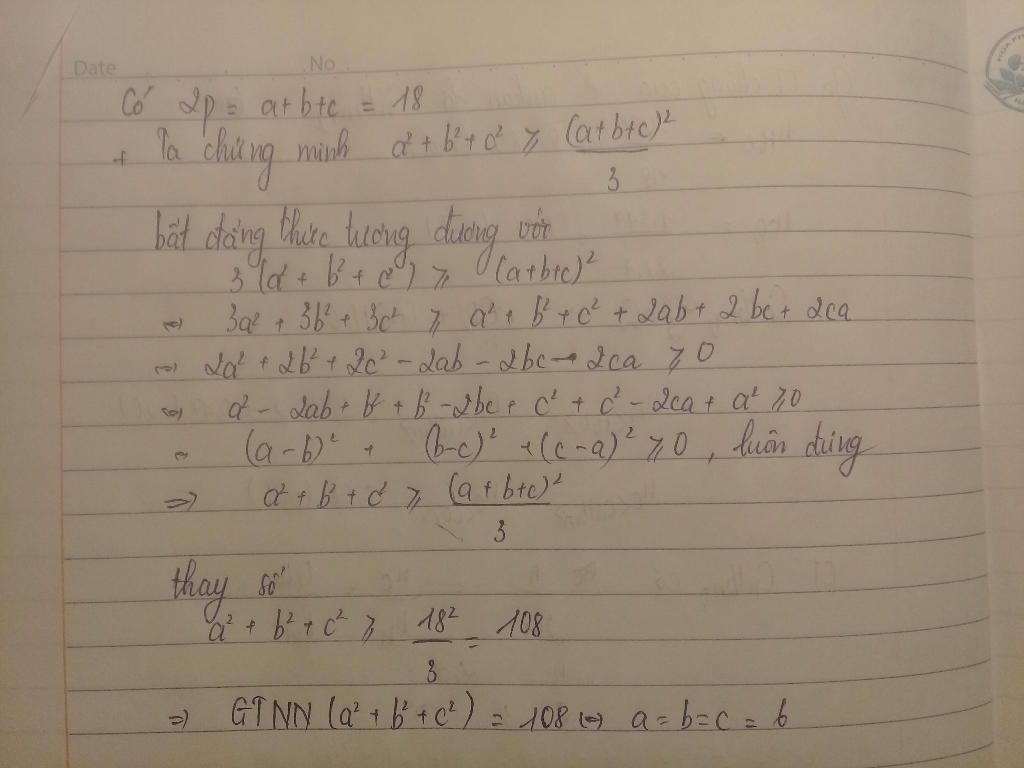 Date No
Có 2p = a+b+c = 18
+ Ta chứng minh a² + b² + c² ⩾ (a+b+c)²/3
bất đẳng thức tương đương với
3(a² + b² + c²) ⩾ (a+b+c)²
⇔ 3a² + 3b² + 3c² ⩾ a² + b² + c² + 2ab + 2bc + 2ca
⇔ 2a² + 2b² + 2c² - 2ab - 2bc - 2ca ⩾ 0
⇔ a² - 2ab + b² + b² - 2bc + c² + c² - 2ca + a² ⩾ 0
⇔ (a-b)² + (b-c)² + (c-a)² ⩾ 0, luôn đúng
⇒ a² + b² + c² ⩾ (a+b+c)²/3
thay số
a² + b² + c² ⩾ 18²/3 = 108
⇒ GTNN (a² + b² + c²) = 108 ⇔ a = b = c = 6